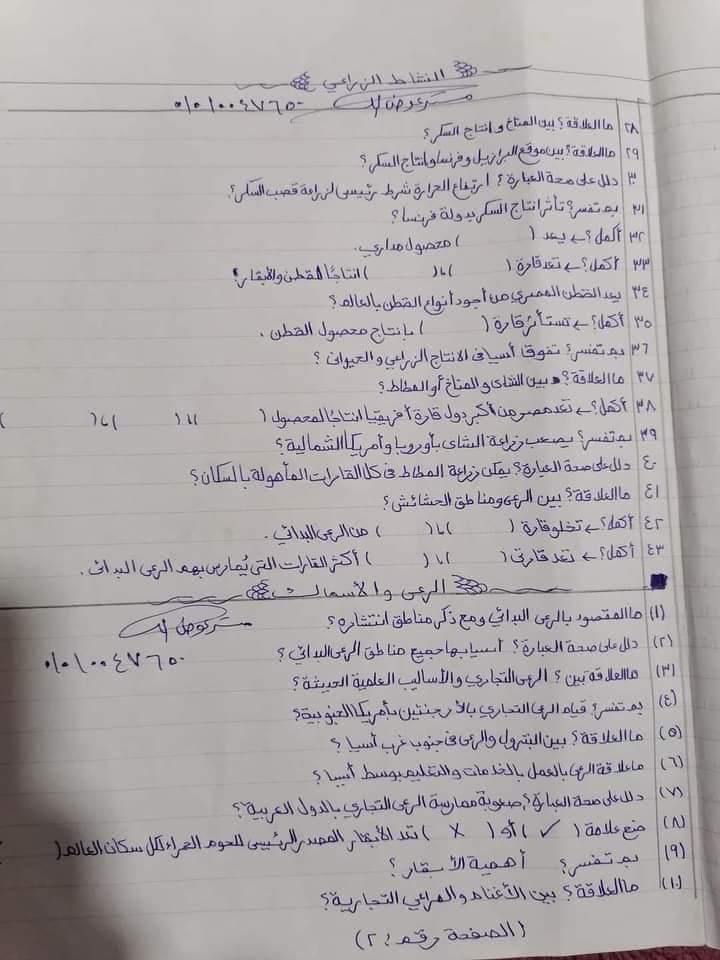 النشاط الزراعي
٠١٠١٠٠٤٧٦٥٠
٢٨ ما العلاقة؟ بين المناخ وإنتاج السكر؟
٢٩ ما العلاقة؟ بين موقع البرازيل وفرنسا وإنتاج السكر؟
٣٠ دلل على صحة العبارة؟ ارتفاع الحرارة شرط رئيسى لزراعة قصب السكر؟
٣١ بم تفسر؟ تأثر إنتاج السكر بدولة فرنسا؟
٣٢ أكمل؟ ← يعد ( ) محصول مدارى.
٣٣ أكمل؟ ← تعد قارة ( )، ( ) إنتاجًا للقطن والأبقار؟
٣٤ يعد القطن المصرى من أجود أنواع القطن بالعالم؟
٣٥ أكمل؟ ← تستأثر قارة ( ) بإنتاج محصول القطن .
٣٦ بم تفسر؟ تفوق آسيا فى الإنتاج الزراعى والحيوانى ؟
٣٧ ما العلاقة؟ بين الشاى والمناخ أو المطاط؟
٣٨ أكمل؟ ← تعد مصر من أكبر دول قارة أفريقيا انتاجًا لمحصول ( )، ( )، ( )
٣٩ بم تفسر؟ يصعب زراعة الشاى بأوروبا وأمريكا الشمالية؟
٤٠ دلل على صحة العبارة؟ يمكن زراعة المطاط فى كل القارات المأهولة بالسكان؟
٤١ ما العلاقة؟ بين الرعى ومناطق الحشائش؟
٤٢ أكمل؟ ← تخلو قارة ( )، ( ) من الرعى البدائى .
٤٣ أكمل؟ ← تعد قارتى ( )، ( ) أكثر القارات التى يُمارس بهم الرعى البدائى .
الرعى والأسماك
(١) ما المقصود بالرعى البدائي ومع ذكر مناطق انتشاره؟
٠١٠١٠٠٤٧٦٥٠
(٢) دلل على صحة العبارة؟ آسيا بها جميع مناطق الرعى البدائي؟
(٣) ما العلاقة بين؟ الرعى التجارى والأساليب العلمية الحديثة؟
(٤) بم تفسر؟ قيام الرعى التجارى بالأرجنتين بأمريكا الجنوبية؟
(٥) ما العلاقة؟ بين البترول والرعى فى جنوب غرب آسيا ؟
(٦) ما علاقة الرعى بالعمل بالخدمات والتعليم بوسط آسيا ؟
(٧) دلل على صحة العبارة؟ صعوبة ممارسة الرعى التجارى بالدول العربية؟
(٨) ضع علامة (✓) أو (X) تعد الأبقار المصدر الرئيسى للحوم الحمراء لكل سكان العالم (
(٩) بم تفسر؟ أهمية الأبقار؟
(١٠) ما العلاقة؟ بين الأغنام والمراعى التجارية؟
(الصفحة رقم: ٢)